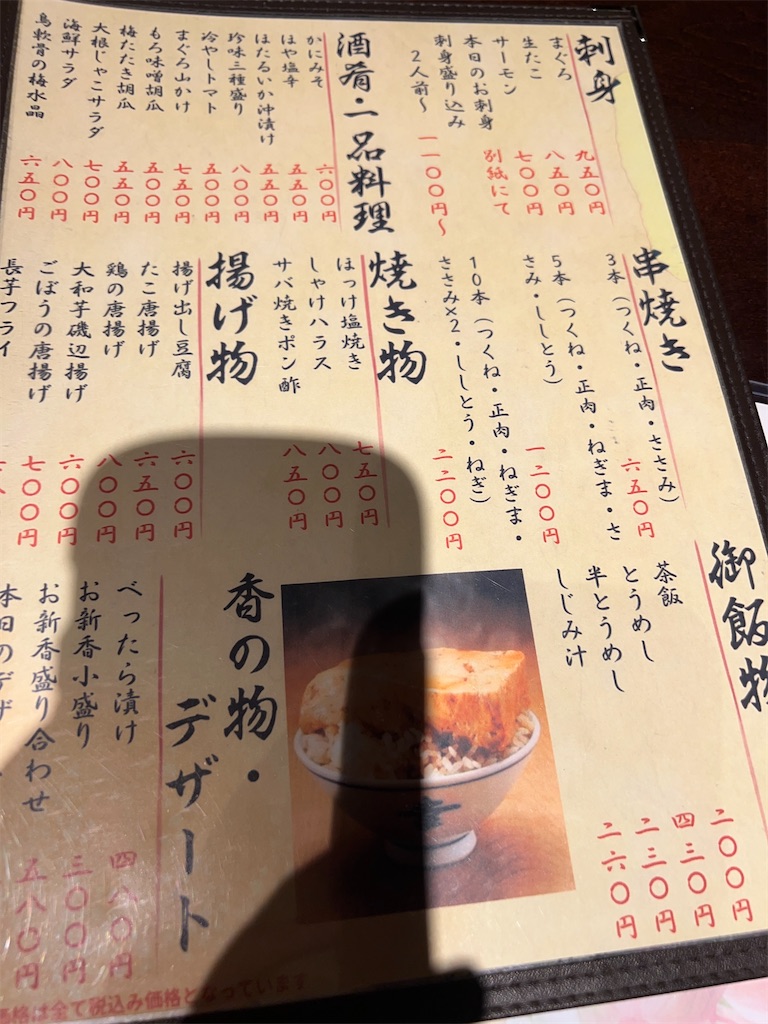 刺身
まぐろ 九五〇円
生たこ 八五〇円
サーモン 七〇〇円
本日のお刺身 別紙にて
刺身盛り込み
2人前〜 一一〇〇円〜
酒肴・一品料理
かにみそ 六〇〇円
ほや塩辛 五五〇円
ほたるいか沖漬け 五五〇円
珍味三種盛り 八〇〇円
冷やしトマト 五〇〇円
まぐろ山かけ 七五〇円
もろ味噌胡瓜 五〇〇円
梅たたき胡瓜 五五〇円
大根じゃこサラダ 七〇〇円
海鮮サラダ 八〇〇円
鳥軟骨の梅水晶 六五〇円
串焼き
3本（つくね・正肉・ささみ）
六五〇円
5本（つくね・正肉・ねぎま・さ
さみ・ししとう） 一二〇〇円
10本（つくね・正肉・ねぎま・
ささみ×2・ししとう・ねぎ）
二二〇〇円
焼き物
ほっけ塩焼き 七五〇円
しゃけハラス 八〇〇円
サバ焼きポン酢 八五〇円
揚げ物
揚げ出し豆腐 六〇〇円
たこ唐揚げ 六五〇円
鶏の唐揚げ 八〇〇円
大和芋磯辺揚げ 六〇〇円
ごぼうの唐揚げ 七〇〇円
長芋フライ
御飯物
茶飯 二〇〇円
とうめし 四三〇円
半とうめし 二三〇円
しじみ汁 二六〇円
香の物・
デザート
べったら漬け 四八〇円
お新香小盛り 三〇〇円
お新香盛り合わせ 五八〇円
本日のデザ
価格は全て税込み価格となっています